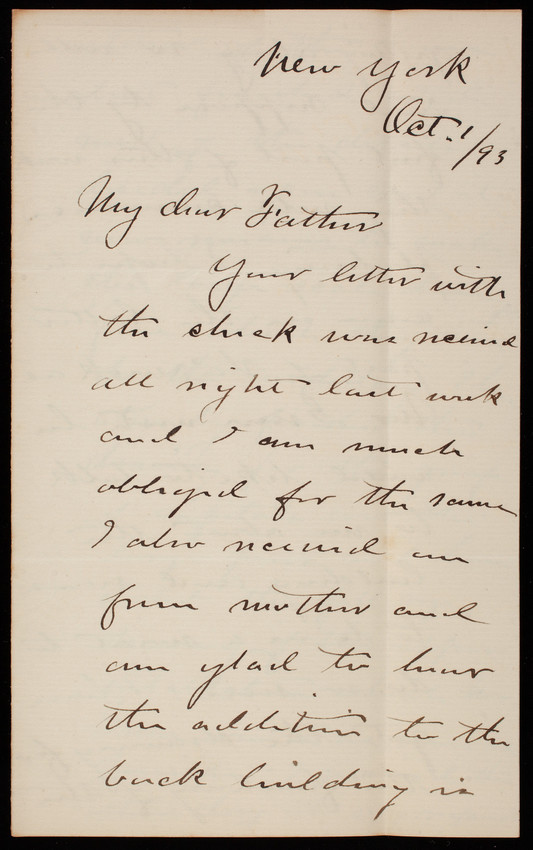 New York
Oct. 1/93
My dear Father
Your letter with
the check was received
all right last week
and I am much
obliged for the same
I also received one
from mother and
am glad to hear
the addition to the
back building is